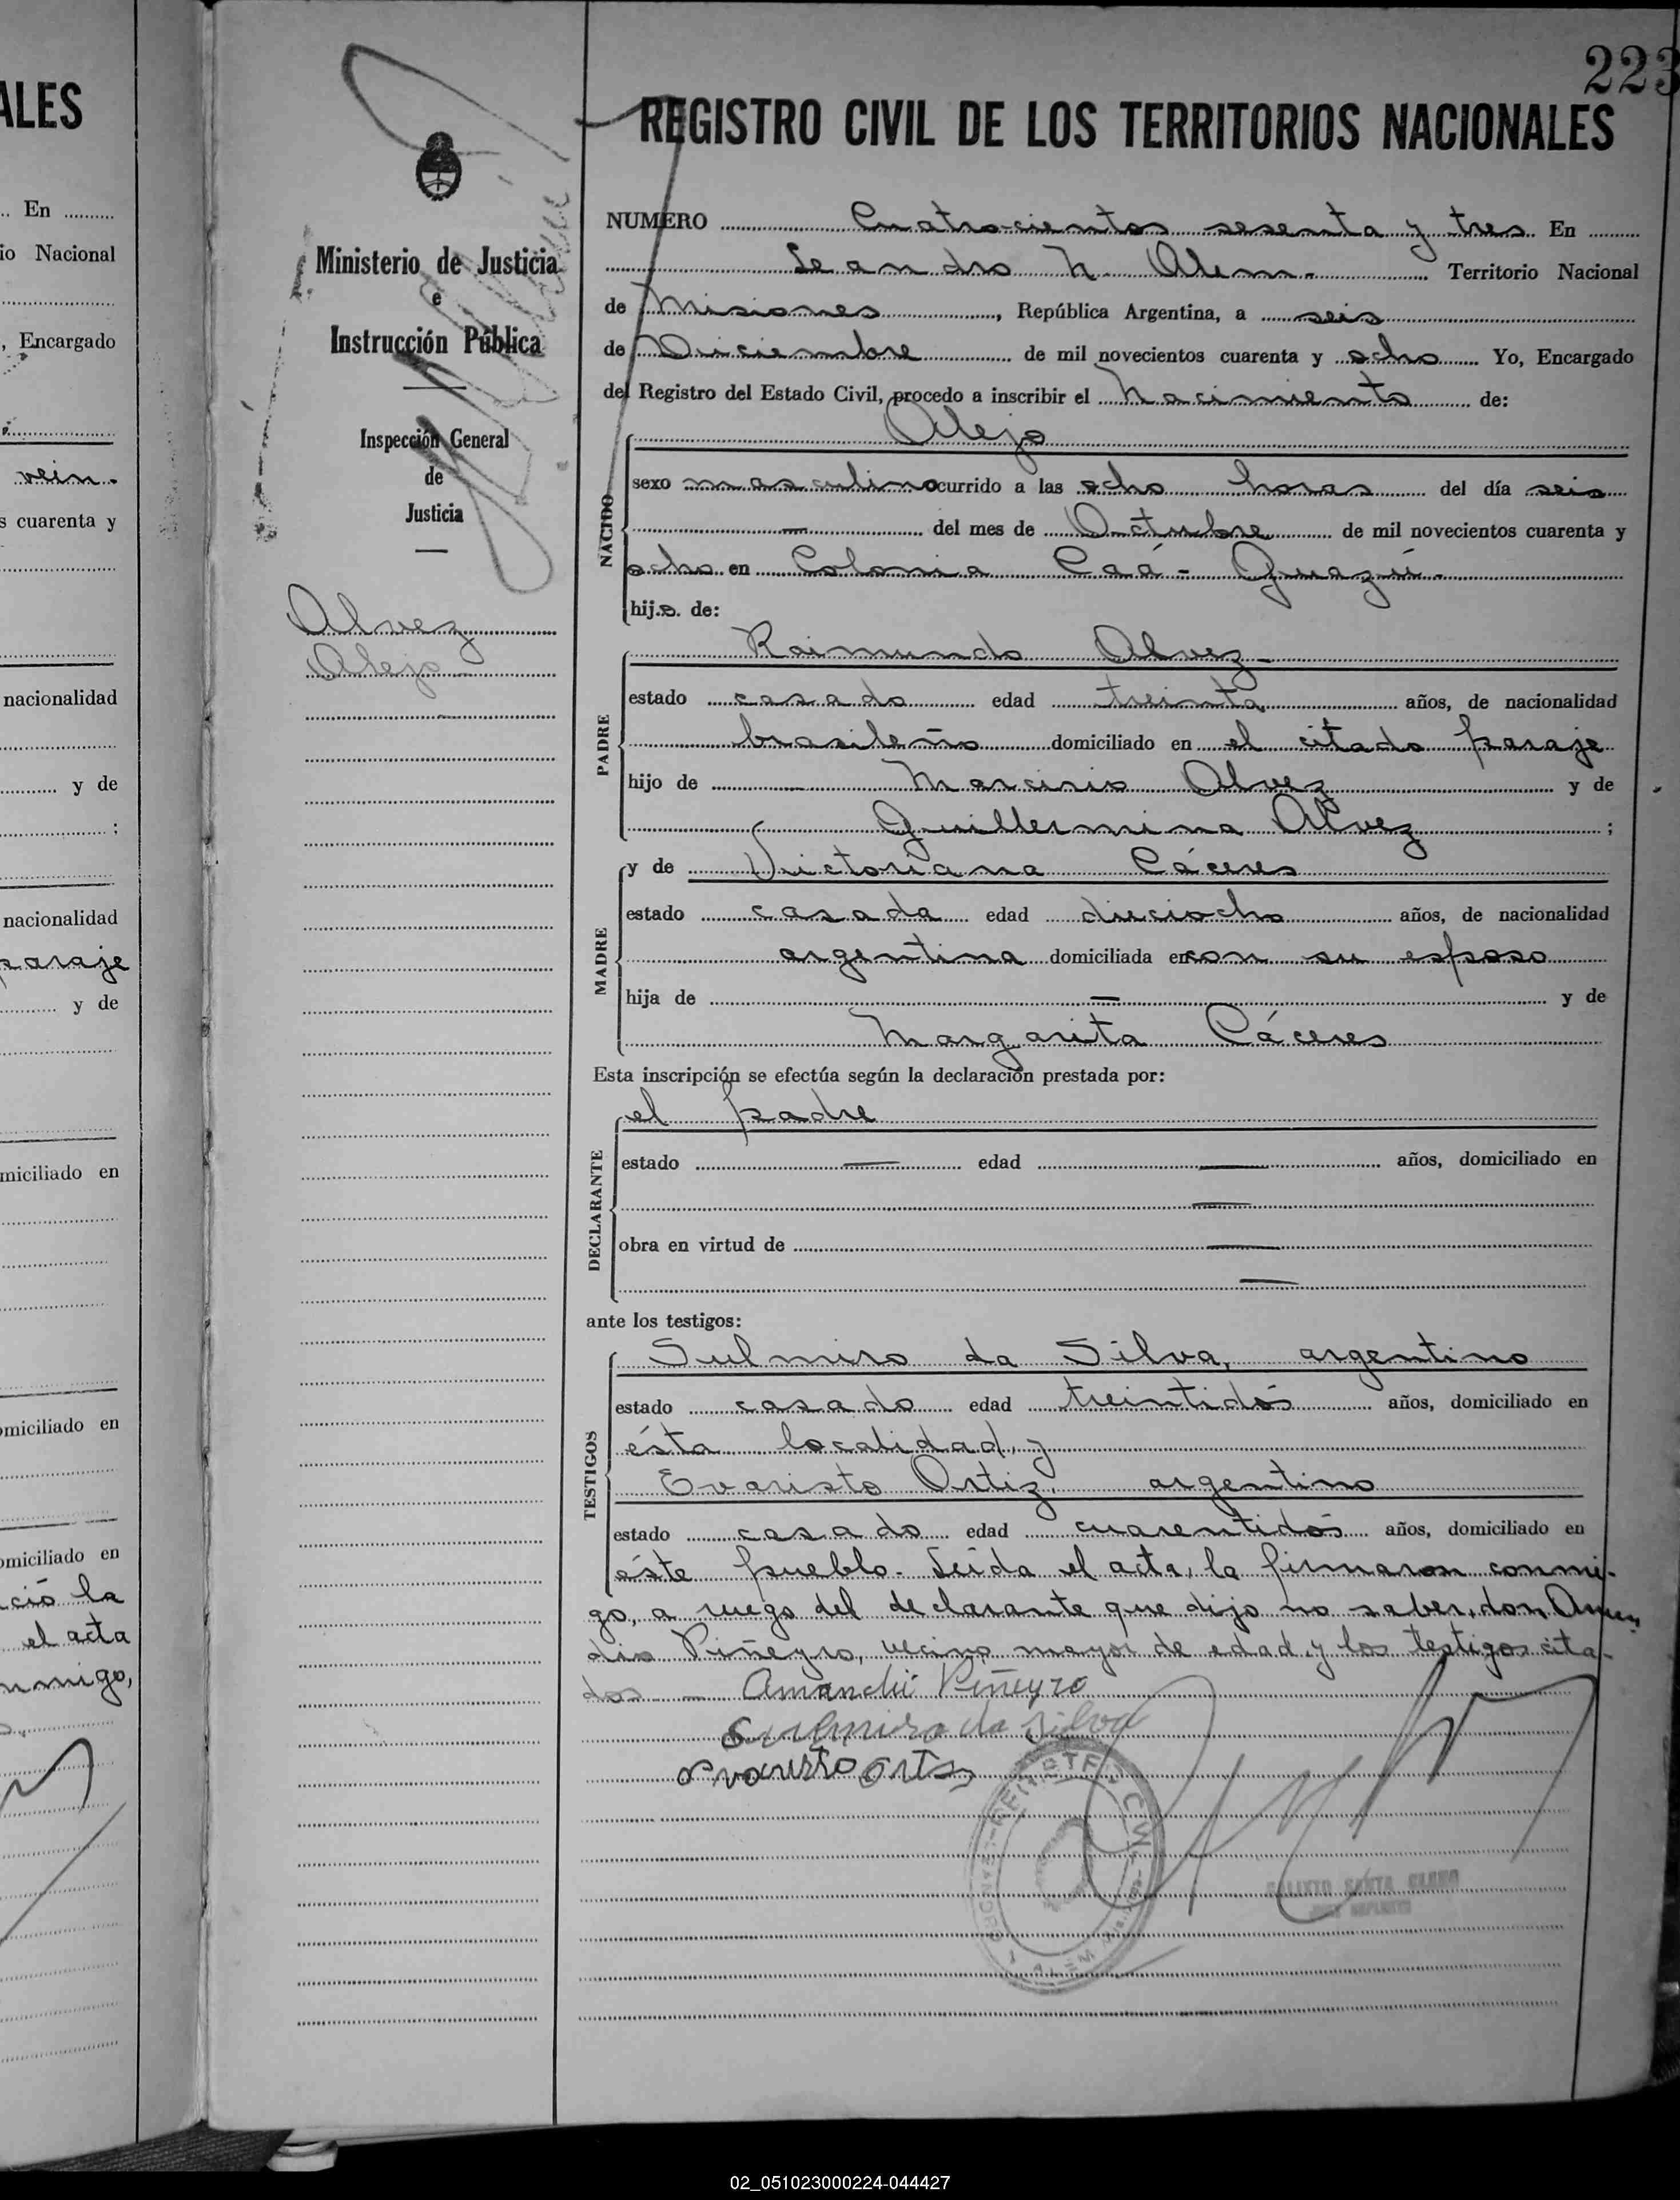 223
REGISTRO CIVIL DE LOS TERRITORIOS NACIONALES
NUMERO Cuatrocientos sesenta y tres En
Leandro N. Alem. Territorio Nacional
de Misiones, República Argentina, a seis
de Diciembre de mil novecientos cuarenta y ocho Yo, Encargado
del Registro del Estado Civil, procedo a inscribir el nacimiento de:
NACIDO
Alejo
sexo masculino ocurrido a las ocho horas del día seis
— del mes de Octubre de mil novecientos cuarenta y
ocho en Colonia Caá-Guazú.
hijo. de:
PADRE
Raimundo Alvez
estado casado edad treinta años, de nacionalidad
brasileño domiciliado en el citado paraje
hijo de Marcirio Alvez y de
Guillermina Alvez ;
MADRE
y de Victoriana Cáceres
estado casada edad dieciocho años, de nacionalidad
argentina domiciliada en con su esposo
hija de — y de
Margarita Cáceres
Esta inscripción se efectúa según la declaración prestada por:
DECLARANTE
el padre
estado — edad — años, domiciliado en
—
obra en virtud de —
—
ante los testigos:
TESTIGOS
Sulmiro da Silva, argentino
estado casado edad treintidós años, domiciliado en
ésta localidad, y
Evaristo Ortiz, argentino
estado casado edad cuarentidós años, domiciliado en
éste pueblo. Leida el acta, la firmaron conmi-
go, a ruego del declarante que dijo no saber, don
Piñeyro, vecino mayor de edad y los testigos cita-
dos — Piñeyro
Sulmiro da Silva
evaristo ortiz
CALIXTO SANTA CLARA
ALEM
Ministerio de Justicia
e
Instrucción Pública
Inspección General
de
Justicia
Alvez
Alejo
ALES
En
io Nacional
, Encargado
vein.
s cuarenta y
nacionalidad
y de
;
nacionalidad
paraje
y de
miciliado en
omiciliado en
omiciliado en
ció la
el acta
nmigo,
02_051023000224-044427